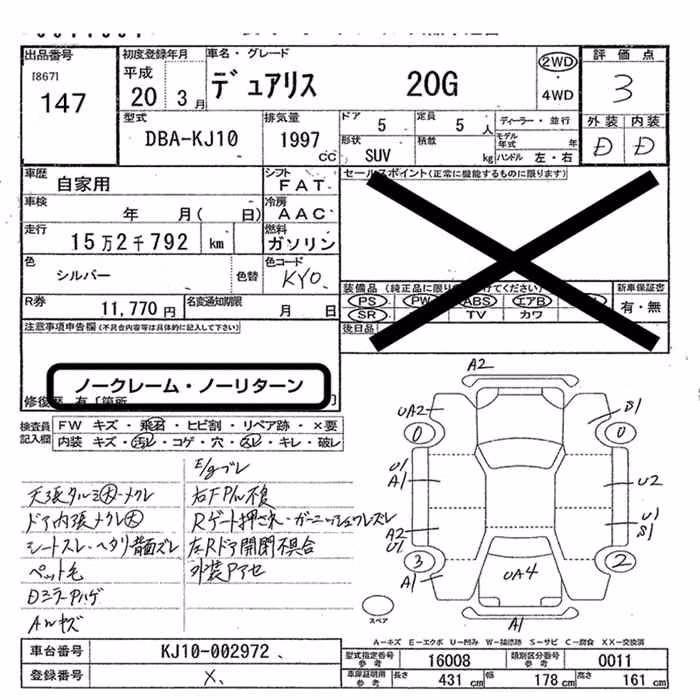 出品番号
[867]
147
初度登録年月
平成
20 3月
車名・グレード
デュアリス 20G
2WD
・
4WD
評価点
3
型式
DBA-KJ10
排気量
1997
CC
ドア
5
定員
5 人
ディーラー・並行
モデル年式 年
形状
SUV
積載
kg
ハンドル 左・右
外装 内装
D D
車歴
自家用
シフト
FAT
車検
年 月( 日)
冷房
AAC
走行
15万2千792 km
燃料
ガソリン
色
シルバー
色替
色コード
KY0
R券
11,770円
名変通知期限
月 日
セールスポイント(正常に機能するものに限ります)
装備品(純正品に限り
けてください)
PS PW ABS エアB
SR TV カワ
新車保証書
有・無
後日品
注意事項申告欄(不具合内容等は具体的に記入して下さい)
ノークレーム・ノーリターン
修復歴 有「箇所
検査員
記入欄
FW キズ・飛石・ヒビ割・リペア跡・×要
内装 キズ・汚レ・コゲ・穴・スレ・キレ・破レ
E/gブレ
天張タルミ大・メクレ
右FPわ不良
ドア内張メクレ大
Rゲート押さネ・ガーニッシュウレズレ
シートスレ・ヘタリ背面ズレ
左Rドア開閉不具合
ペット毛
外装Pアセ
DミラーPハゲ
AWキズ
A2
UA2
S1
0
0
U1
A1
U2
U1
S1
A2
U1
3
2
A1
UA4
A1
スペア
A-キズ E-エクボ U-凹み W-補修跡 S-サビ C-腐食 XX-交換済
車台番号
KJ10-002972
登録番号
X
型式指定番号
参考
16008
類別区分番号
参考
0011
車庫証明用
参考
長さ
431 cm
幅
178 cm
高さ
161 cm